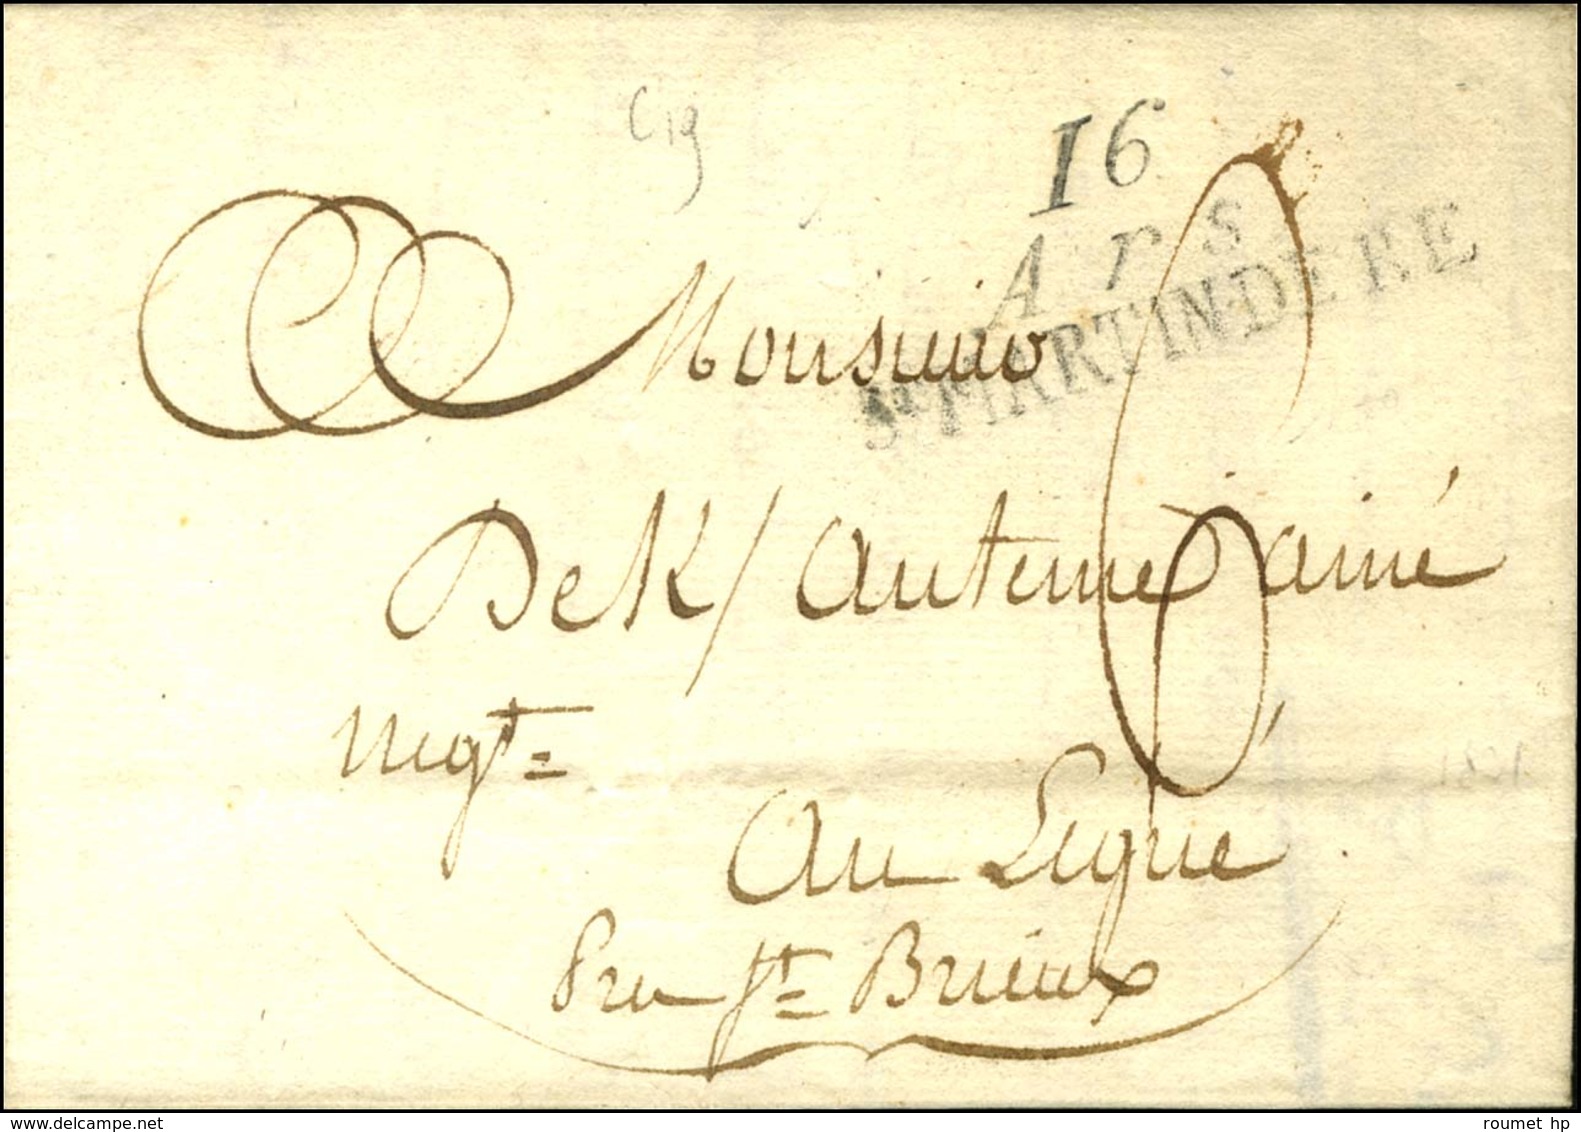 C19
16
Ars
St MARTIN-DE RE
6
Monsieur
De K/ auteme ainé
negt=
au Légué
Pres St= Brieux
www.delcampe.net
roumet hp